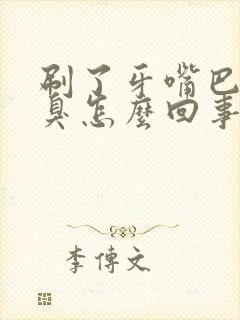 刷了牙嘴巴
臭怎麼回事
李傳文